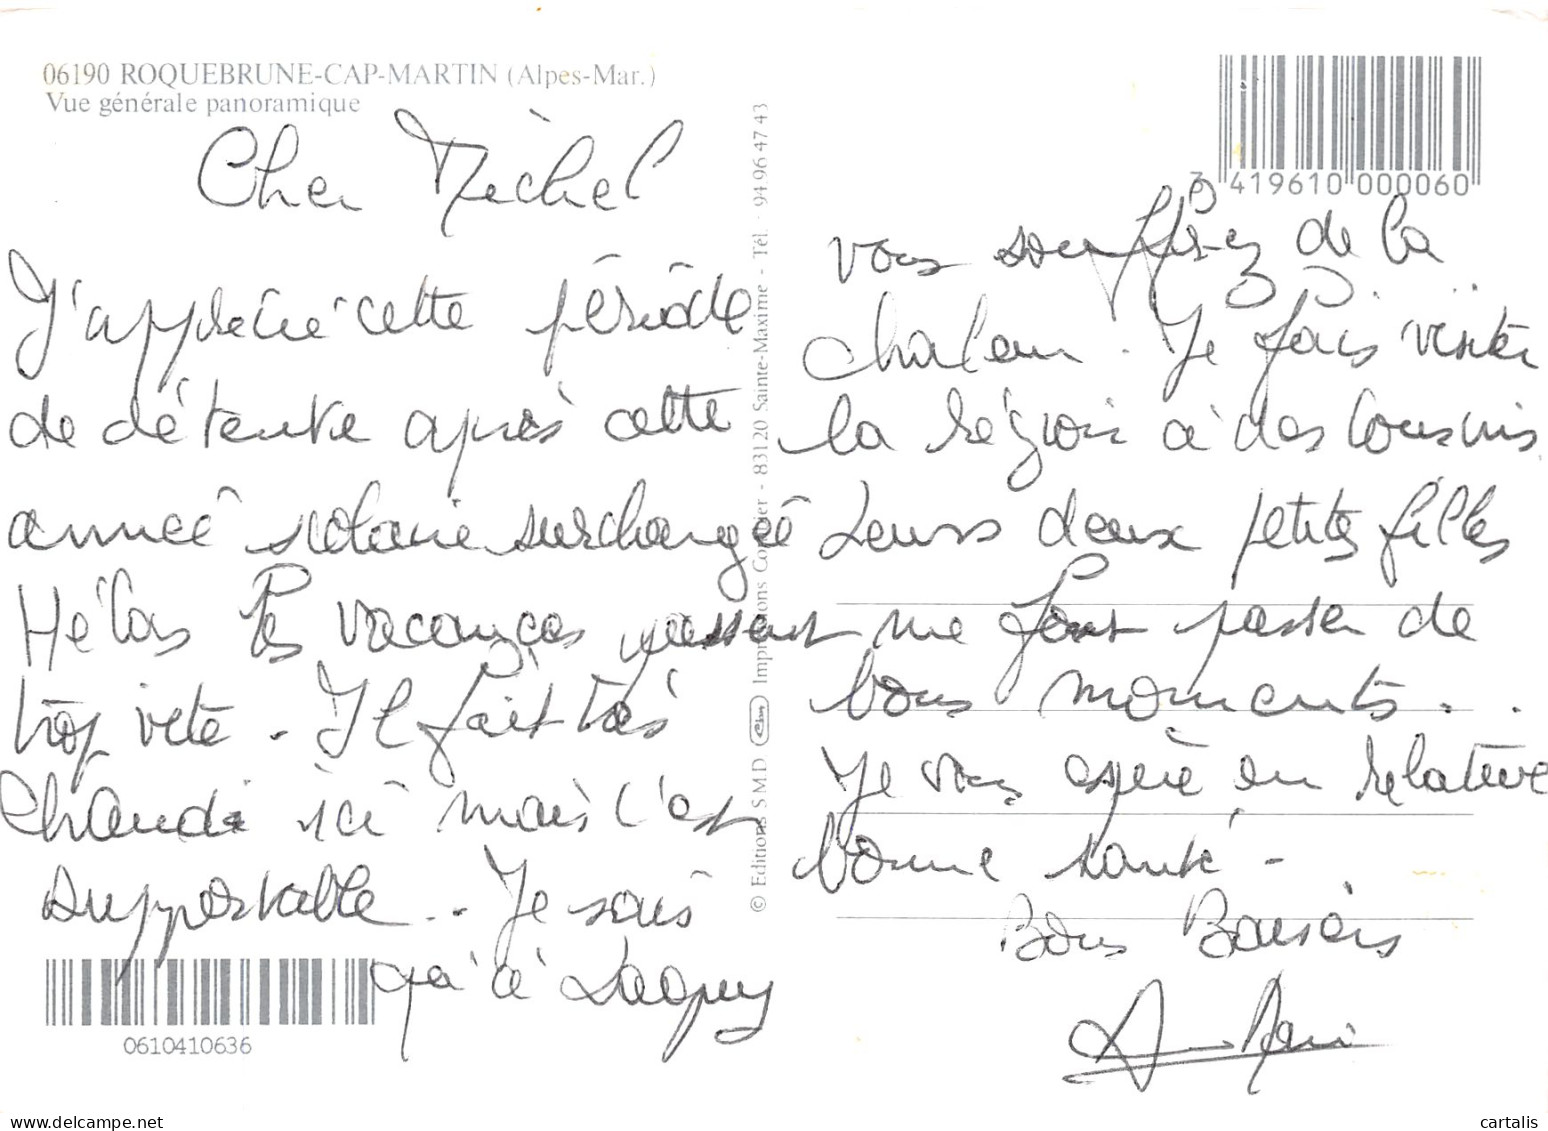 06190 ROQUEBRUNE-CAP-MARTIN (Alpes-Mar.)
Vue générale panoramique
Cher Michel
J'apprécie cette période
de détente après cette
année scolaire surchargée
Hélas les vacances passent
trop vite - Il fait très
chaud ici mais c'est
supportable .. Je sais
qu'à Lagny
0610410636
© Editions SMD - 83120 Sainte-Maxime - Tél. 94 96 47 43
3 419610 000060
vous souffrez de la
chaleur. Je fais visiter
la région à des cousins
Leurs deux petites filles
me font passer de
bons moments . .
Je vous espère en relative
bonne santé -
Bons Baisers
cartalis